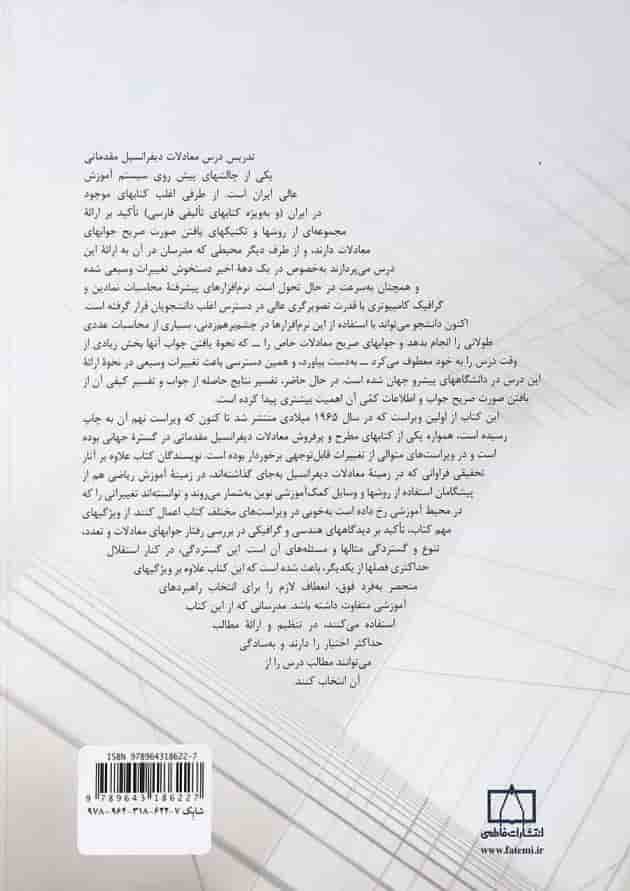 تدریس درس معادلات دیفرانسیل مقدماتی
یکی از چالشهای پیش روی سیستم آموزش
عالی ایران است. از طرفی اغلب کتابهای موجود
در ایران (و به‌ویژه کتابهای تألیفی فارسی) تأکید بر ارائهٔ
مجموعه‌ای از روشها و تکنیکهای یافتن صورت صریح جوابهای
معادلات دارند، و از طرف دیگر محیطی که مدرسان در آن به ارائهٔ این
درس می‌پردازند به‌خصوص در یک دههٔ اخیر دستخوش تغییرات وسیعی شده
و همچنان به‌سرعت در حال تحول است. نرم‌افزارهای پیشرفتهٔ محاسبات نمادین و
گرافیک کامپیوتری با قدرت تصویرگری عالی در دسترس اغلب دانشجویان قرار گرفته است.
اکنون دانشجو می‌تواند با استفاده از این نرم‌افزارها در چشم‌برهم‌زدنی، بسیاری از محاسبات عددی
طولانی را انجام بدهد و جوابهای صریح معادلات خاص را ــ که نحوهٔ یافتن آنها بخش زیادی از
وقت درس را به خود معطوف می‌کرد ــ به‌دست بیاورد، و همین دسترسی باعث تغییرات وسیعی در نحوهٔ ارائهٔ
این درس در دانشگاههای پیشرو جهان شده است. در حال حاضر، تفسیر نتایج حاصله از جواب و تفسیر کیفی آن از
یافتن صورت صریح جواب و اطلاعات کمّی آن اهمیت بیشتری پیدا کرده است.
این کتاب از اولین ویراست که در سال ۱۹۶۵ میلادی منتشر شد تا کنون که ویراست نهم آن به چاپ
رسیده است، همواره یکی از کتابهای مطرح و پرفروش معادلات دیفرانسیل مقدماتی در گسترهٔ جهانی بوده
است و در ویراست‌های متوالی از تغییرات قابل‌توجهی برخوردار بوده است. نویسندگان کتاب علاوه بر آثار
تحقیقی فراوانی که در زمینهٔ معادلات دیفرانسیل به‌جای گذاشته‌اند، در زمینهٔ آموزش ریاضی هم از
پیشگامان استفاده از روشها و وسایل کمک‌آموزشی نوین به‌شمار می‌روند و توانسته‌اند تغییراتی را که
در محیط آموزشی رخ داده است به‌خوبی در ویراست‌های مختلف کتاب اعمال کنند. از ویژگیهای
مهم کتاب، تأکید بر دیدگاههای هندسی و گرافیکی در بررسی رفتار جوابهای معادلات و تعدد،
تنوع و گستردگی مثالها و مسئله‌های آن است. این گستردگی، در کنار استقلال
حداکثری فصلها از یکدیگر، باعث شده است که این کتاب علاوه بر ویژگیهای
منحصر به‌فرد فوق، انعطاف لازم را برای انتخاب راهبردهای
آموزشی متفاوت داشته باشد. مدرسانی که از این کتاب
استفاده می‌کنند، در تنظیم و ارائهٔ مطالب
حداکثر اختیار را دارند و به‌سادگی
می‌توانند مطالب درس را از
آن انتخاب کنند.
ISBN 978964318622-7
9 789643 186227
شابک ۷-۶۲۲-۳۱۸-۹۶۴-۹۷۸
انتشارات فاطمی
www.fatemi.ir